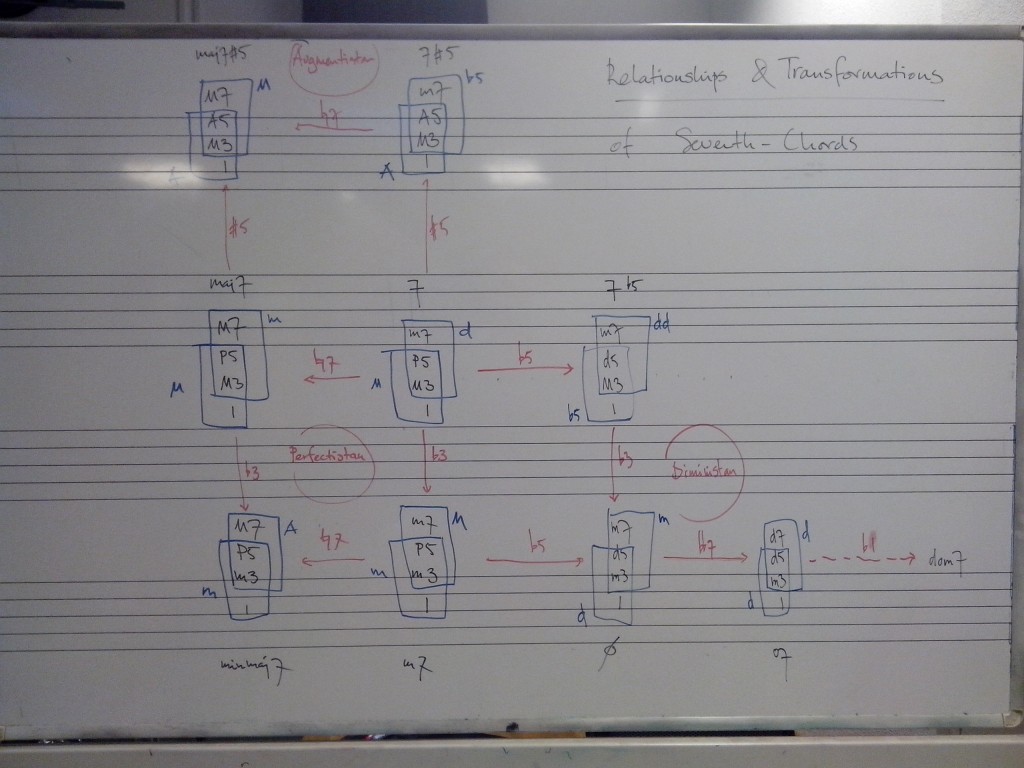 Relationships & Transformations
of Seventh-Chords
maj7#5 Augmentistan 7#5
M7 M m7 b5
A5 ♮7 A5
M3 M3
1 A 1
#5 #5
maj7 7 7b5
M7 m m7 d m7 dd
P5 ♮7 P5 b5 d5
M M3 M M3 M3
1 1 b5 1
b3 Perfectistan b3 b3 Diministan
M7 A m7 M m7 m d7 d
P5 ♮7 P5 b5 d5 b7 d5 b1 dom7
m m3 m m3 m3 m3
1 1 d 1 d 1
minmaj7 m7 ø o7